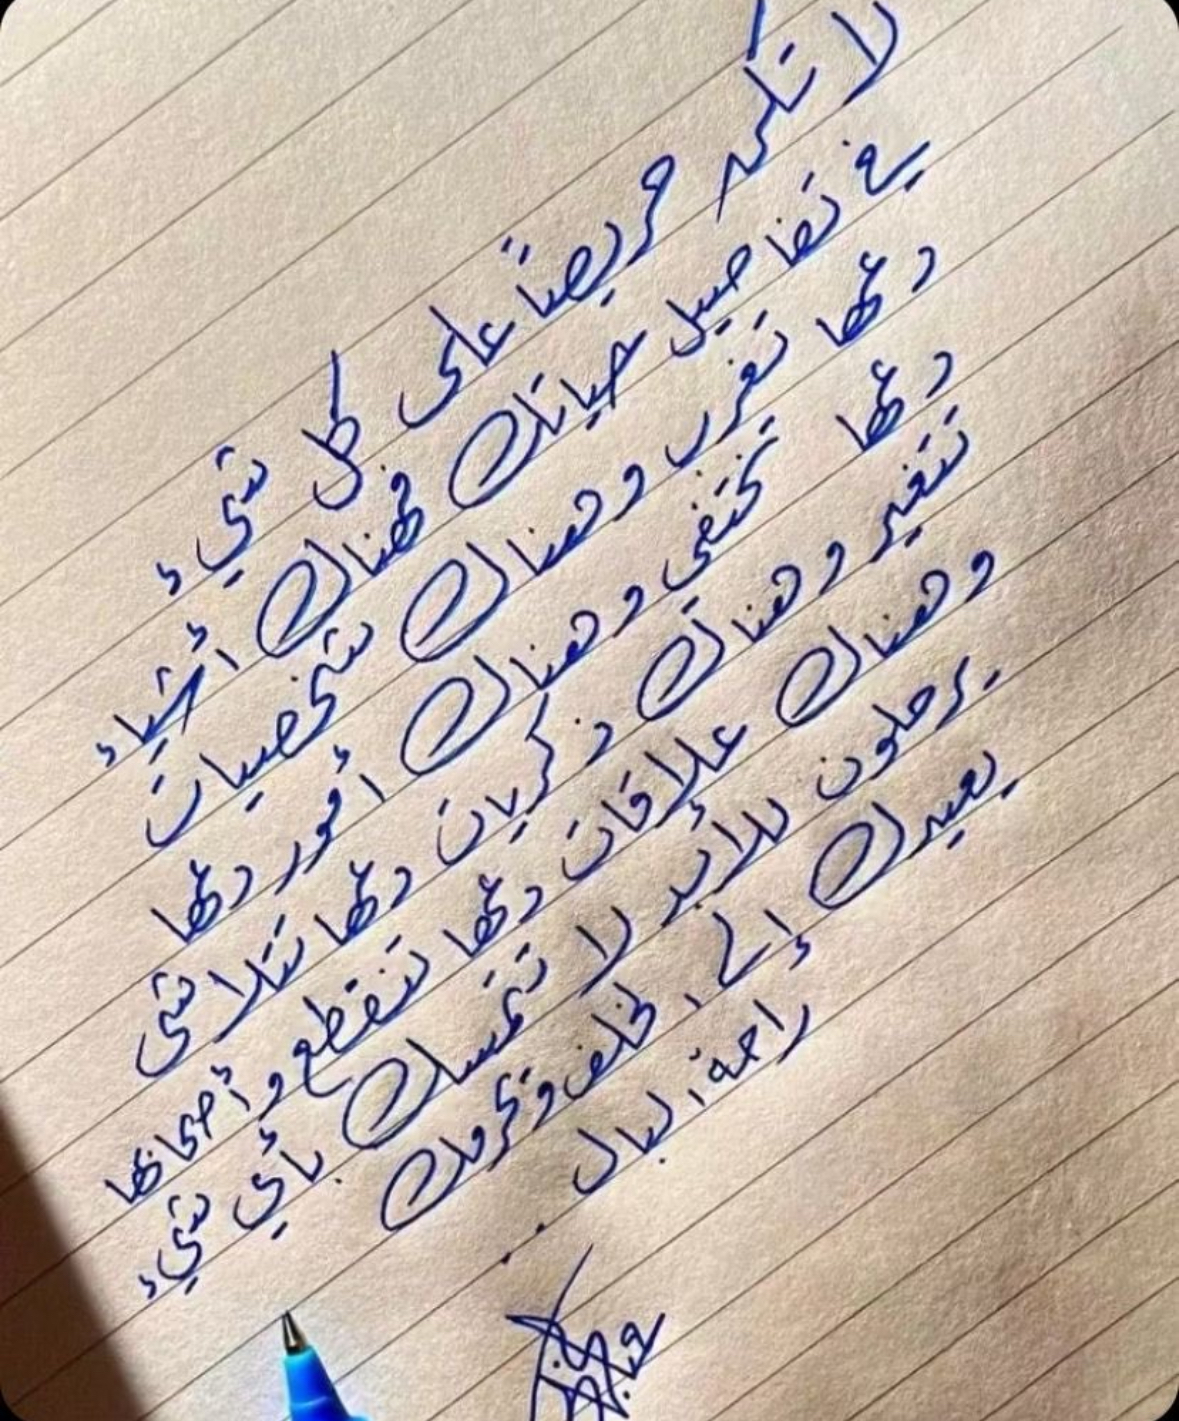 لا تكن حريصاً على كل شيء
في تفاصيل حياتك فهناك أشياء
دعها تغرب وهناك شخصيات
دعها تختفي وهناك أمور دعها
تتغير وهناك ذكريات دعها تتلاشى
وهناك علاقات دعها تنقطع وأصحابها
يرحلون للأبد لا تتمسك بأي شيء
يعيدك إلى الخلف وتحرمك
راحة البال ..